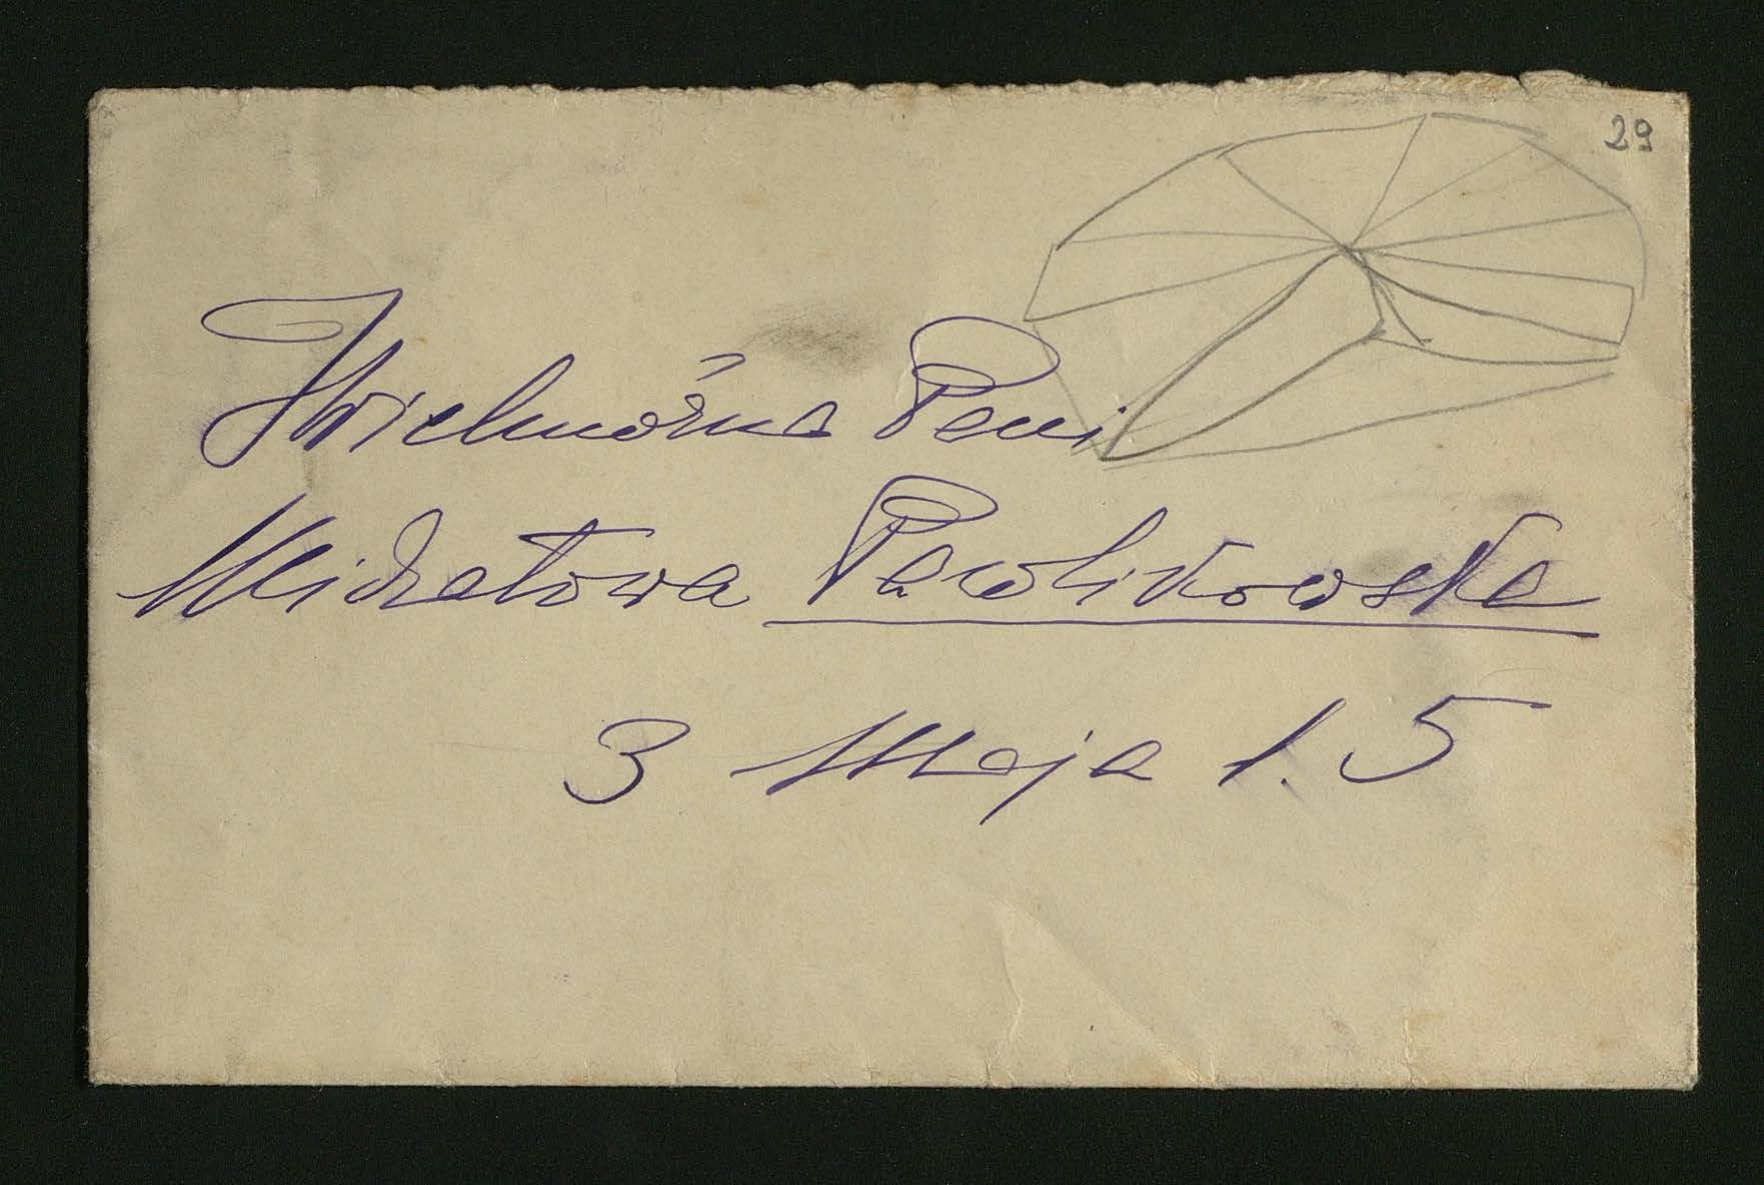 29
Wielmożna Pani
Michałowa Pawlikowska
3 Maja l. 5